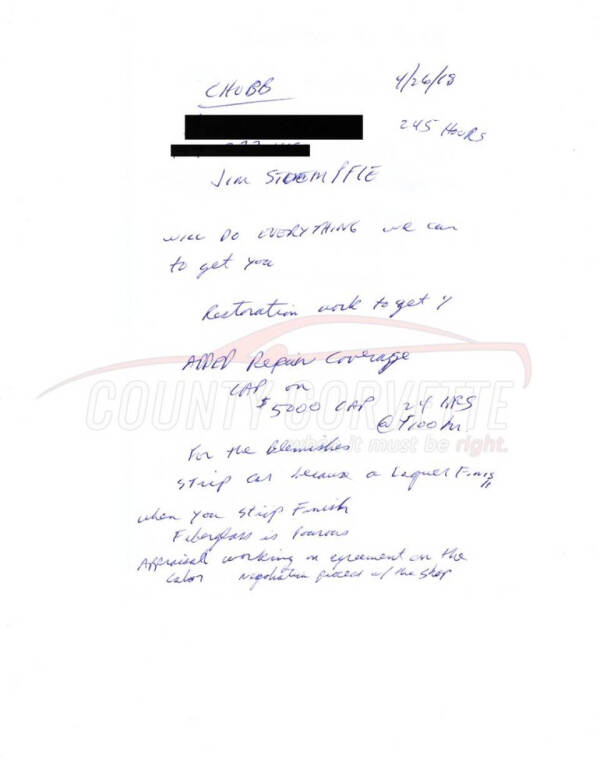 CHUBB
4/26/18
245 HOURS
Jim STOEMPFLE
will DO EVERYTHING we can
to get you
Restoration work to get
ADDED Repair Coverage
CAP on
$5000 CAP 24 HRS
@ $100 hr.
COUNTY CORVETTE
it must be right.
For the blemishes
Strip car because a Laquer
when you strip Finish
Fiberglass is Pourous
Appraisal working on agreement on the
Labor Negotiation process w/ the shop